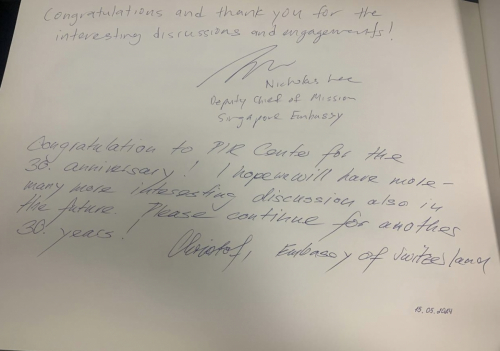 Congratulations and thank you for the
interesting discussions and engagements!
Nicholas Lee
Deputy Chief of Mission
Singapore Embassy
Congratulation to PIR Center for the
30. anniversary! I hope will have more –
many more interesting discussion also in
the future. Please continue for another
30. years!
Christof, Embassy of Switzerland
15.05.2024